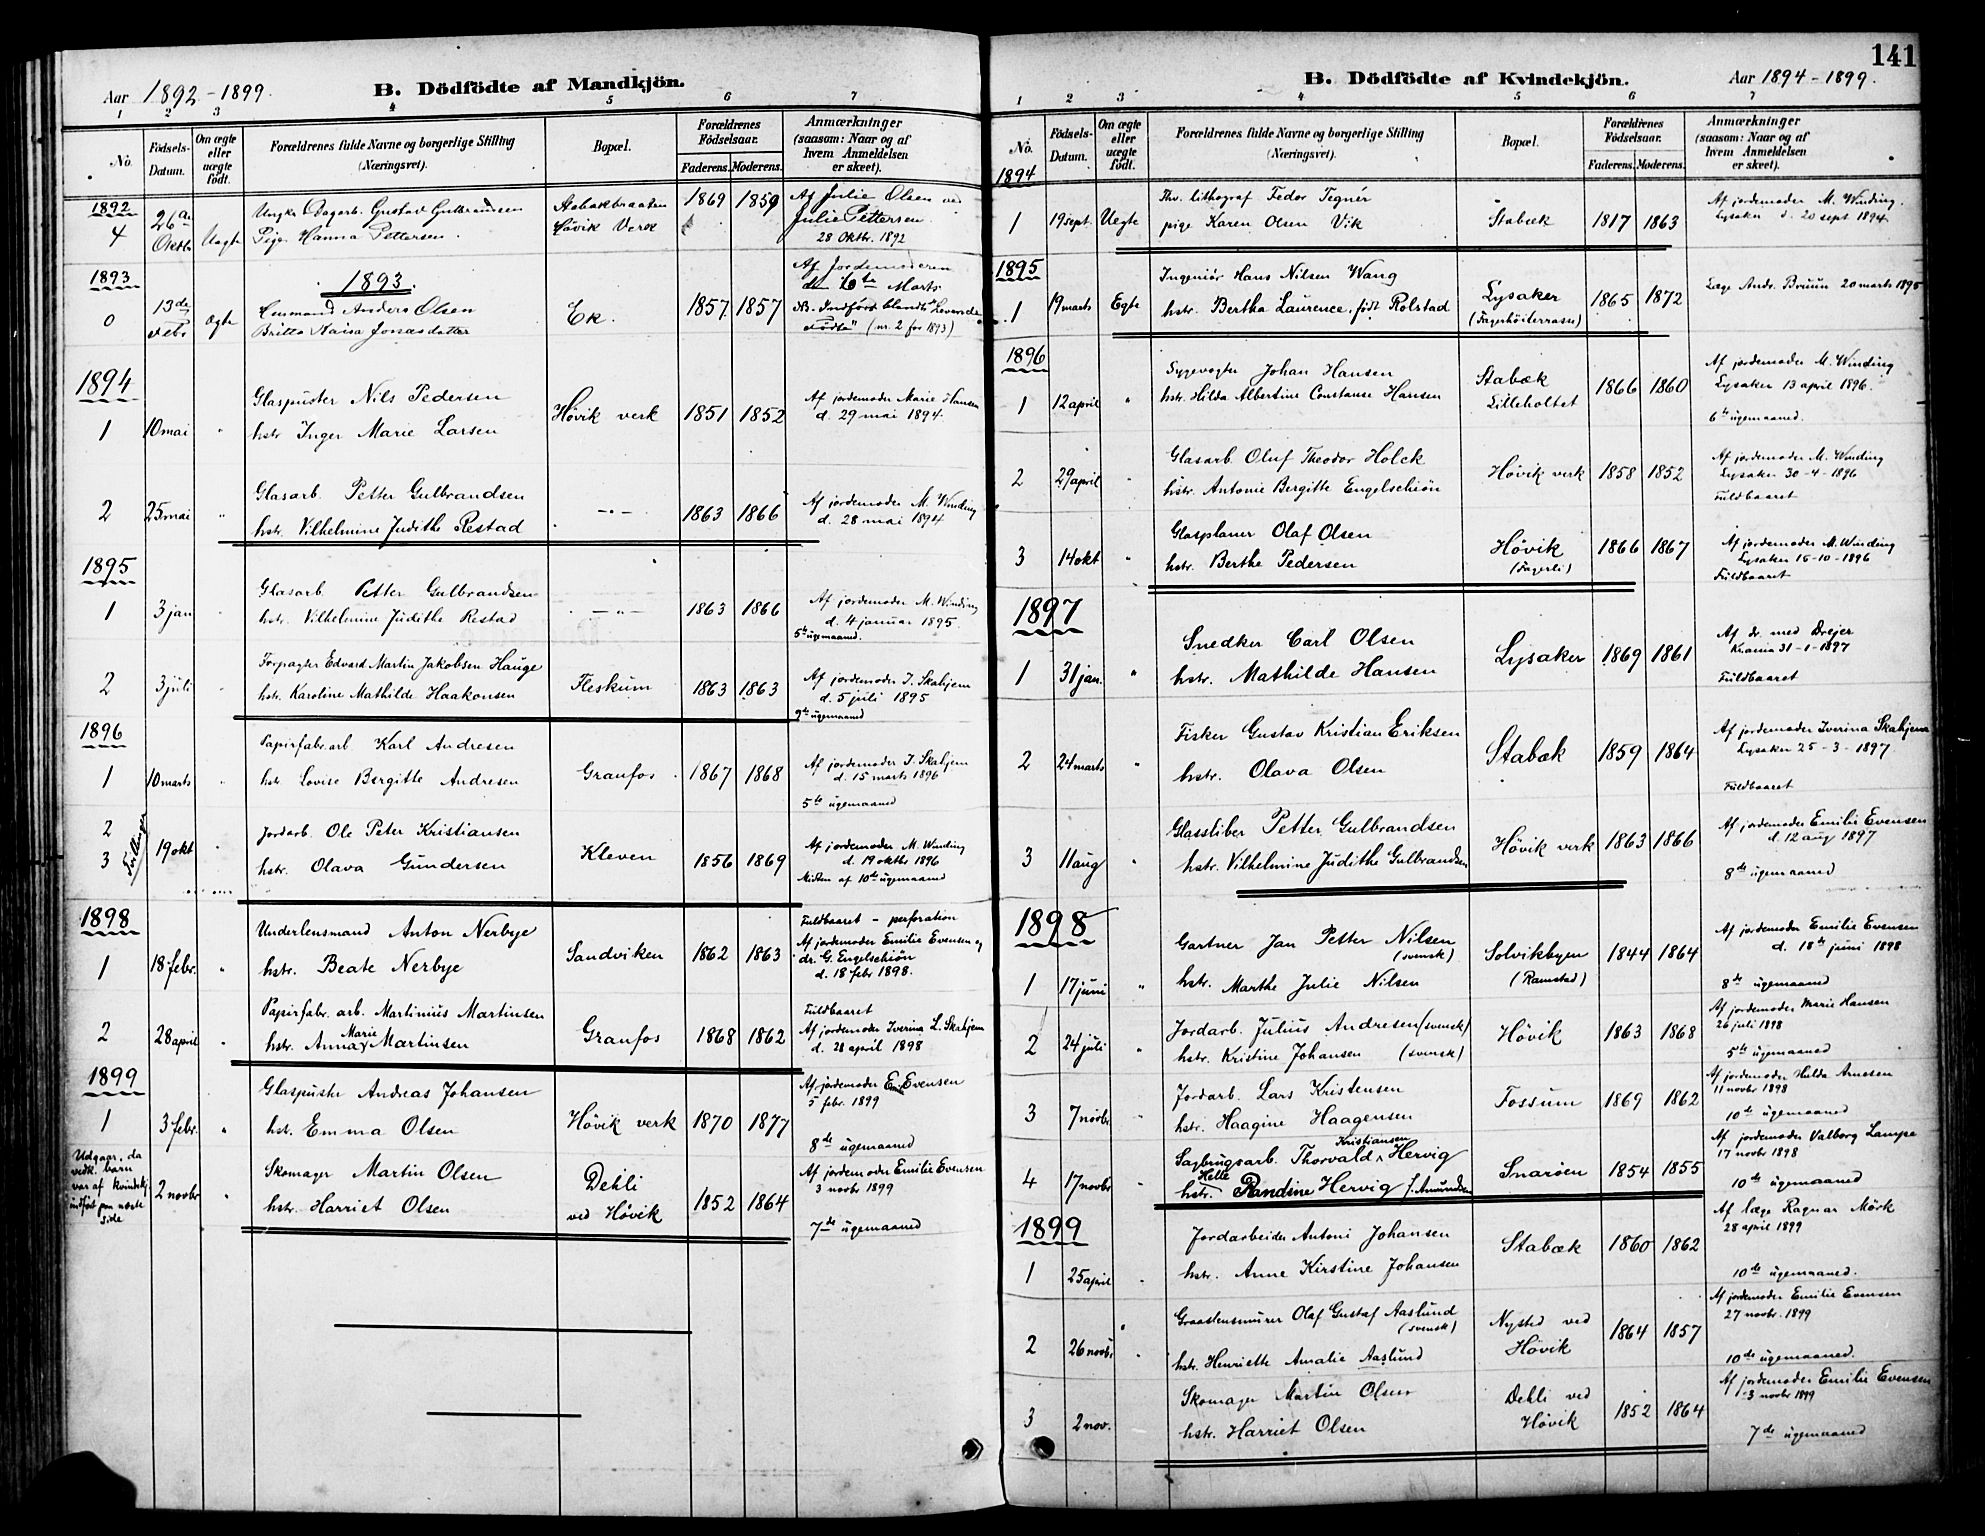 Aar 1892-1899.
B. Dödfödte af Mandkjön.
1 2 3 4 5 6 7
No.
Födsels-Datum.
Om ægte eller uægte födt.
Forældrenes fulde Navne og borgerlige Stilling (Næringsvei).
Bopæl.
Forældrenes Födselsaar.
Faderens. Moderens.
Anmærkninger (saasom: Naar og af hvem Anmeldelsen er skeet).
1892
4 26de Oktb. Uægte
Ungk. Dagarb. Gustav Gulbrandsen
Pige Hanna Pettersen.
Stabækbraaten
Høvik Verk
1869 1859
Af Julie Olsen ved
Julie Pettersen
28 Oktbr. 1892
1893
1893.
0 13de Febr ægte
Husmand Anders Olsen
Britta Kaisa Jonasdatter
Ek.
1857 1857
Af Jordemoderen
d. 10de Marts
NB. Indført blandt "Levende
Fødte" (nr. 2 for 1893)
1894
1 10 mai "
Glaspuster Nils Pedersen
hstr Inger Marie Larsen
Høvik verk
1851 1852
Af jordemoder Marie Hansen
d. 29 mai 1894.
2 25 mai "
Glasarb. Petter Gulbrandsen
hstr. Vilhelmine Judithe Restad
— " —
1863 1866
Af jordemoder M. Winding
d. 28 mai 1894
1895
1 3 jan "
Glasarb. Petter Gulbrandsen
hstr. Vilhelmine Judithe Restad
— " —
1863 1866
Af jordemoder M. Winding
d. 4 januar 1895.
5te ugemaaned.
2 3 juli "
Forpagter Edvard Martin Jakobsen Hauge
hstr. Karoline Mathilde Haakonsen
Fleskum
1863 1863
Af jordemoder I. Skahjem
d. 5 juli 1895
9de ugemaaned
1896
1 10 marts "
Papirfabr.arb. Karl Andresen
hstr. Lovise Bergitte Andresen
Granfos.
1867 1868
Af jordemoder I. Skahjem
d. 15 marts 1896
5te ugemaaned
2
3 Tvillinger 19 okt "
Jordarb. Ole Peter Kristiansen
hstr. Olava Gundersen
Kleven
1856 1869
Af jordemoder M. Winding
d. 19 oktbr 1896
Midten af 10de ugemaaned
1898
1 18 febr. "
Underlensmand Anton Nerbye
hstr. Beate Nerbye
Sandviken
1862 1863
Fuldbaaret - perforation
Af jordemoder Emilie Evensen og
dr. G. Engelschiön
d. 18 febr 1898.
2 28 april "
Papirfabr. arb. Martinius Martinsen
hstr. Anna Marie Martinsen
Granfos
1868 1862
Fuldbaaret
Af jordemoder Iverina L. Skahjem
d. 28 april 1898
1899
1 3 febr. "
Glaspuster Andreas Johansen
hst. Emma Olsen
Høvik verk
1870 1877
Af jordemoder Em. Evensen
5 febr. 1899
8de ugemaaned
Udgaar, da
vedk. barn
var af Kvindekj.
indført paa næste
side
2 novbr "
Skomager Martin Olsen
hstr. Harriet Olsen
Dehli
ved Høvik
1852 1864
Af jordemoder Emilie Evensen
3 novbr 1899
7de ugemaaned
141
B. Dödfödte af Kvindekjön.
Aar 1894-1899.
1 2 3 4 5 6 7
No.
Födsels-Datum.
Om ægte eller uægte födt.
Forældrenes fulde Navne og borgerlige Stilling (Næringsvei).
Bopæl.
Forældrenes Födselsaar.
Faderens. Moderens.
Anmærkninger (saasom: Naar og af hvem Anmeldelsen er skeet).
1894
1 19 sept. Uegte
Thv. lithograf Fedor Tegnér
pige Karen Olsen Vik
Stabæk
1817 1863
Af jordemoder M. Winding.
Lysaker d. 20 sept 1894.
1895
1 19 marts Egte
Ingeniør Hans Nilsen Wang
hstr. Bertha Laurence, født Rolstad
Lysaker
(Fagerhöiterrasse)
1865 1872
Læge Andr. Bruun 20 marts 1895
1896
1 12 april "
Sygevogter Johan Hansen
hstr. Hilda Albertine Constanse Hansen
Stabæk
Lilleholtet
1866 1860
Af jordemoder M. Winding
Lysaker 13 april 1896.
6te ugemaaned.
2 29 april "
Glasarb. Oluf Theodor Holck
hstr. Antonie Bergitte Engelschiön
Høvik verk
1858 1852
Af jordemoder M. Winding
Lysaker 30-4-1896
Fuldbaaret
3 14 okt "
Glasplaner Olaf Olsen
hstr. Berthe Pedersen
Høvik
(Fagerli)
1866 1867
Af jordemoder M. Winding
Lysaker 15-10-1896
Fuldbaaret
1897
1 31 jan. "
Snedker Carl Olsen
hstr. Mathilde Hansen
Lysaker
1869 1861
Af dr. med Drejer
Krania 31-1-1897
Fuldbaaret
2 24 marts "
Fisker Gustav Kristian Eriksen
hstr. Olava Olsen
Stabæk
1859 1864
Af jordemoder Iverina Skahjem
Lysaker 25-3-1897.
Fuldbaaret
3 11 aug "
Glassliber Petter Gulbrandsen
hstr. Vilhelmine Judithe Gulbrandsen
Høvik verk
1863 1866
Af jordemoder Emilie Evensen
d. 12 aug 1897
8de ugemaaned
1898
1 17 juni "
Gartner Jan Petter Nilsen
(svensk)
hstr. Marthe Julie Nilsen
Solvikbyen
(Ramstad)
1844 1864
Af jordemoder Emilie Evensen
d. 18de juni 1898
8de ugemaaned
2 24 juli "
Jordarb. Julius Andresen (svensk)
hstr. Kristine Johansen (svensk)
Høvik
1863 1868
Af jordemoder Marie Hansen
26 juli 1898
5te ugemaaned
3 7 novbr "
Jordarb. Lars Kristensen
hstr. Haagine Haagensen
Fossum
1869 1862
Af jordemoder Hulda Arnesen
11 novbr 1898
10de ugemaaned
4 17 novbr "
Sagbrugsarb. Thorvald Kristiansen Hervig
hstr. Helle Randine Hervig f. Amundsen
Snarøen
1854 1855
Af jordemoder Valborg Lampe
17 novbr 1898
10de ugemaaned
1899
1 25 april "
Jordarbeider Antoni Johansen
hstr. Anne Kirstine Johansen
Stabæk
1860 1862
Af læge Ragnar Mörk
28 april 1899
10de ugemaaned.
2 26 novbr. "
Graastensmurer Olaf Gustaf Aaslund
(svensk)
hstr. Henriette Amalie Aaslund
Nysted ved
Høvik
1864 1857
Af jordemoder Emilie Evensen
27 novbr. 1899
10de ugemaaned.
3 2 nov.
Skomager Martin Olsen
hstr. Harriet Olsen
Dehli ved
Høvik
1852 1864
Af jordemoder Emilie Evensen
3 novbr 1899
7de ugemaaned